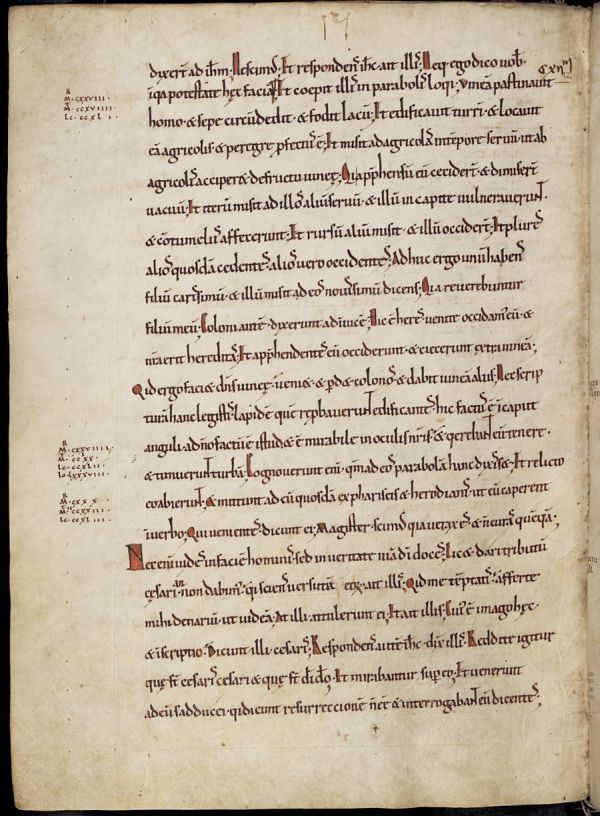 dixert̄ ad ih̄m. Nescimus. Et respondens ih̄c. ait illis. Neq; ego dico uob̄.
inqua potestate hęc faciam. Et coepit illis in parabolis loqi. Vineā pastinauit
homo. & sepē circūdedit. & fodit lacū. Et edificauit turrī. & locauit
eā agricolis. & peregre pfectus ē. Et misit ad agricolas intēpore seruū. ut ab
agricolis acciper& de fructu uineę. Qui apphensū eū cecidert̄. & dimisert̄
uacuū. Et iterū misit ad illos aliū seruū. & illū in capite uulnerauerunt.
& cōtumeliis affecerunt. Et rursū aliū misit. & illū occidert̄. Et plures
alios. quosdā cedentes. alios uero occidentes. Adhuc ergo unū habens
filiū carissimū. & illū misit ad eos nouissimū dicens. Quia reuerebuntur
filiū meū. Coloni autē. dixerunt adinuicē. Hic ē heres. uenite occidam' eū. &
nr̄a erit hereditas. Et apphendentes eū occiderunt. & eiecerunt extra uineā;
Qid ergo faci& dn̄s uineę. ueni&. & pd& colonos. & dabit uineā aliis. Nec scrip
turā hanc legistis. lapidē quē repbauerunt edificantes. hic factus ē in caput
anguli. a dn̄o factū ē istud. & ē mirabile in oculis nr̄is. & qerebant eū tenere.
& timuerunt turbā. Cognouerunt eni. qm̄ ad eos parabolā hanc dixer&. Et relicto
eo abierunt. & mittunt ad eū quosdā ex phariseis & herodianis. ut eū caperent
in uerbo. Qui uenientes dicunt ei. Magister. scimus quia uerax es. & n̄ curas quēquā.
Nec eni uides in faciē hominis. sed in ueritate uiā dī doces. Lic& dari tributū
cęsari. an non dabim'. qi sciens uersutiā eoꝝ. ait illis. Qid me tēptatis. afferte
mihi denariū. ut uideā. At illi attulerunt ei. Et ait illis. Cui' ē imago hęc.
& inscriptio. Dicunt illi cesaris. Respondens autē ih̄c. dix̄ illis. Reddite igitur
quę st̄ cesaris cesari. & quę st̄ dī dō. Et mirabantur sup eo. Et uenerunt
ad eū sadducei. qi dicunt resurrectionē n̄ ēē. & interrogabant eū dicentes;